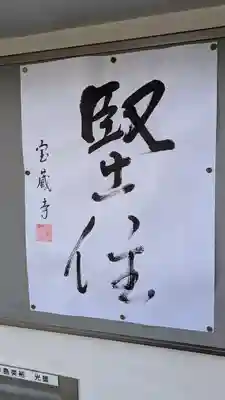 堅住
宝蔵寺